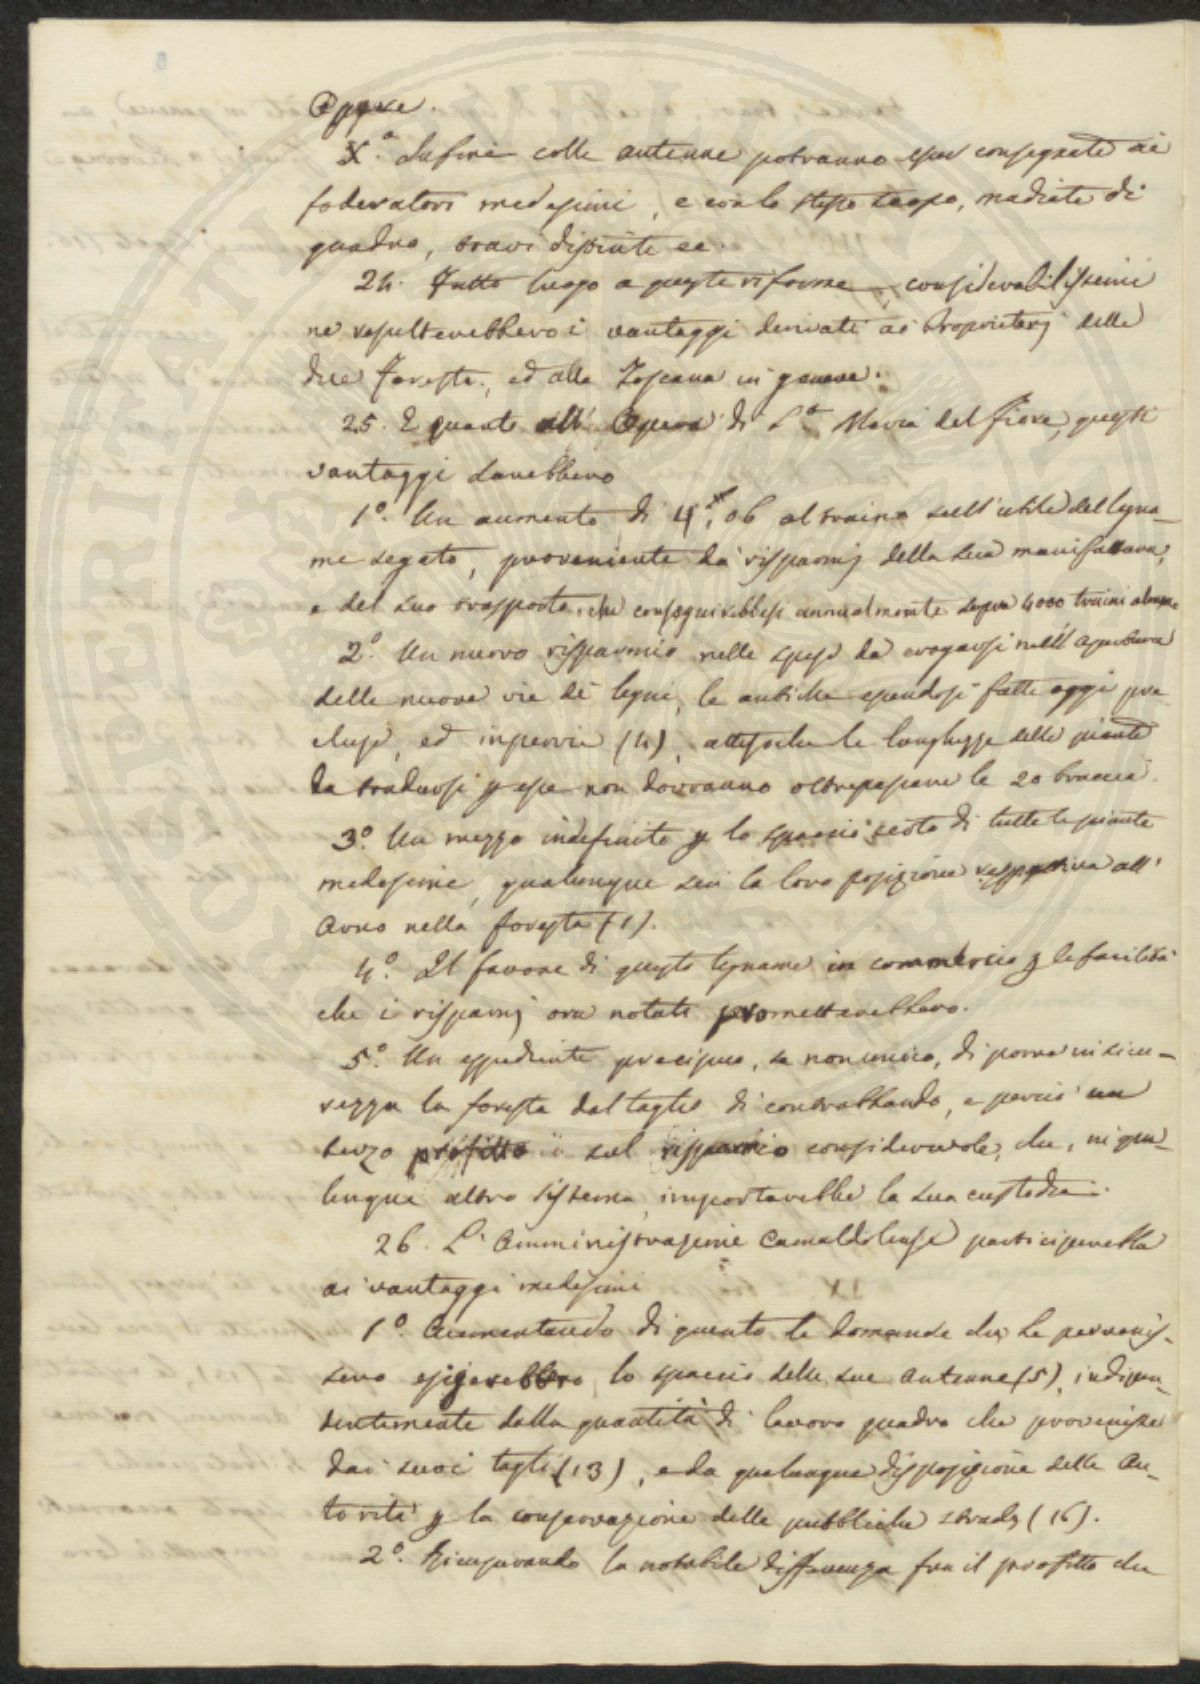 Oppure.
X.° Infine colle antenne potranno esser consegnate ai
foderatori medesimi, e con lo stesso tempo, madiate di
quadro, travi distinte ec.
24. Fatto luogo a queste riforme considerabilissimi
ne resulterebbero i vantaggi derivati ai Proprietarj delle
due foreste, ed alla Toscana in genere.
25. E quanto all' Opera di S.ta Maria del Fiore, questi
vantaggi sarebbero
1.° Un aumento di 06 al traino sull'utile del legna-
me segato, proveniente da' risparmj della sua manifattura,
e del suo trasporto, che conseguirebbesi annualmente sopra 4000 traini almeno
2.° Un nuovo risparmio nelle spese da erogarsi nell' apertura
delle nuove vie dei legni, le antiche essendosi fatte oggi pre-
cluse, ed impervie (4), attesochè le lunghezze delle piante
da tradursi p esse non dovranno oltrepassare le 20 braccia.
3.° Un mezzo indefinito p lo spaccio certo di tutte le piante
medesime, qualunque sia la loro posizione respettiva all'
Arno nella foresta (1).
4.° Il favore di questo legname in commercio p le facilità
che i risparmj ora notati prometterebbero.
5.° Un espediente precipuo, se non unico, di porre in sicu-
rezza la foresta dal taglio di contrabbando, e perciò un
terzo profitto sul risparmio considerevole, che, in qua-
lunque altro sistema, importerebbe la sua custodia.
26. L' Amministrazione Camaldolense participerebbe
ai vantaggi medesimi
1.° Aumentando di quanto le domande che le pervenis-
sero esigerebbero lo spaccio delle sue Antenne (5), indipen-
dentemente dalla quantità di lavoro quadro che provenisse
dai suoi tagli (13), e da qualunque disposizione delle Au-
torità p la conservazione delle pubbliche strade (16).
2.° Ricuperando la notabile differenza fra il profitto che